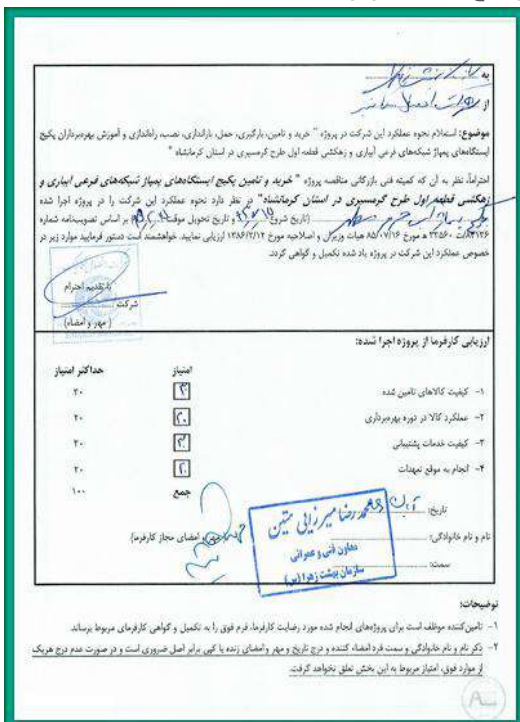 به
از
موضوع: استعلام نحوه عملکرد این شرکت در پروژه " خرید و تامین، بارگیری، حمل، باراندازی، نصب، راه‌اندازی و آموزش بهره‌برداران پکیج
ایستگاه‌های پمپاژ شبکه‌های فرعی آبیاری و زهکشی قطعه اول طرح گرمسیری در استان کرمانشاه "
احتراماً، نظر به آن که کمیته فنی بازرگانی مناقصه پروژه " خرید و تامین پکیج ایستگاه‌های پمپاژ شبکه‌های فرعی آبیاری و
زهکشی قطعه اول طرح گرمسیری در استان کرمانشاه" در نظر دارد نحوه عملکرد این شرکت را در پروژه اجرا شده
(تاریخ شروع و تاریخ تحویل موقت بر اساس تصویب‌نامه شماره
ت ۳۳۵۶۰ ه مورخ ۸۵/۰۷/۱۶ هیات وزیران و اصلاحیه مورخ ۱۳۸۶/۲/۱۲ ارزیابی نمایید. خواهشمند است دستور فرمایید موارد زیر در
خصوص عملکرد این شرکت در پروژه یاد شده تکمیل و گواهی گردد.
با تقدیم احترام
شرکت
(مهر و امضاء)
ارزیابی کارفرما از پروژه اجرا شده:
امتیاز حداکثر امتیاز
۱- کیفیت کالاهای تامین شده
۲- عملکرد کالا در دوره بهره‌برداری
۳- کیفیت خدمات پشتیبانی
۴- انجام به موقع تعهدات
جمع ۱۰۰
تاریخ:
نام و نام خانوادگی: امضای مجاز کارفرما)
سمت:
محمدرضا میرزایی متین
معاون فنی و عمرانی
سازمان بهشت زهرا (س)
توضیحات:
۱- تامین‌کننده موظف است برای پروژه‌های انجام شده مورد رضایت کارفرما، فرم فوق را به تکمیل و گواهی کارفرمای مربوط برساند.
۲- ذکر نام و نام خانوادگی و سمت فرد امضاء کننده و درج تاریخ و مهر و امضای زنده یا کپی برابر اصل ضروری است و در صورت عدم درج هریک
از موارد فوق، امتیاز مربوط به این بخش تعلق نخواهد گرفت.